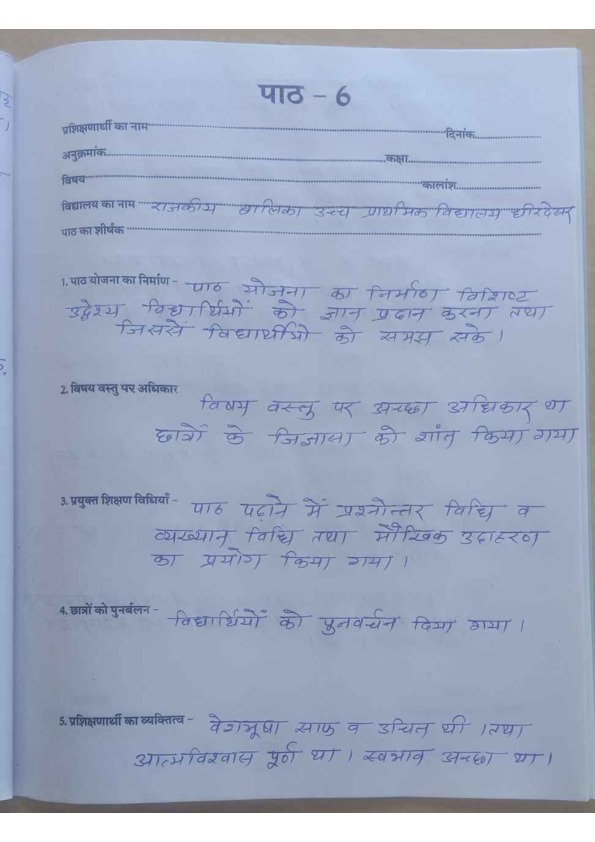 पाठ – 6
प्रशिक्षणार्थी का नाम दिनांक
अनुक्रमांक कक्षा
विषय कालांश
विद्यालय का नाम राजकीय बालिका उच्च प्राथमिक विद्यालय धीरदेसर
पाठ का शीर्षक
1. पाठ योजना का निर्माण – पाठ योजना का निर्माण विशिष्ट
उद्देश्य विद्यार्थियों को ज्ञान प्रदान करना तथा
जिससे विद्यार्थीयो को समझ सके ।
2. विषय वस्तु पर अधिकार
विषय वस्तु पर अच्छा अधिकार था
छात्रों के जिज्ञासा को शांत किया गया
3. प्रयुक्त शिक्षण विधियाँ – पाठ पढ़ाने में प्रश्नोन्तर विधि व
व्यख्यान विधि तथा मौखिक उदाहरण
का प्रयोग किया गया ।
4. छात्रों को पुनर्बलन – विद्यार्थियों को पुनवर्चन दिया गया ।
5. प्रशिक्षणार्थी का व्यक्तित्व – वेशभूषा साफ व उचित थी । तथा
आत्मविश्वास पूर्ण था । स्वभाव अच्छा था ।